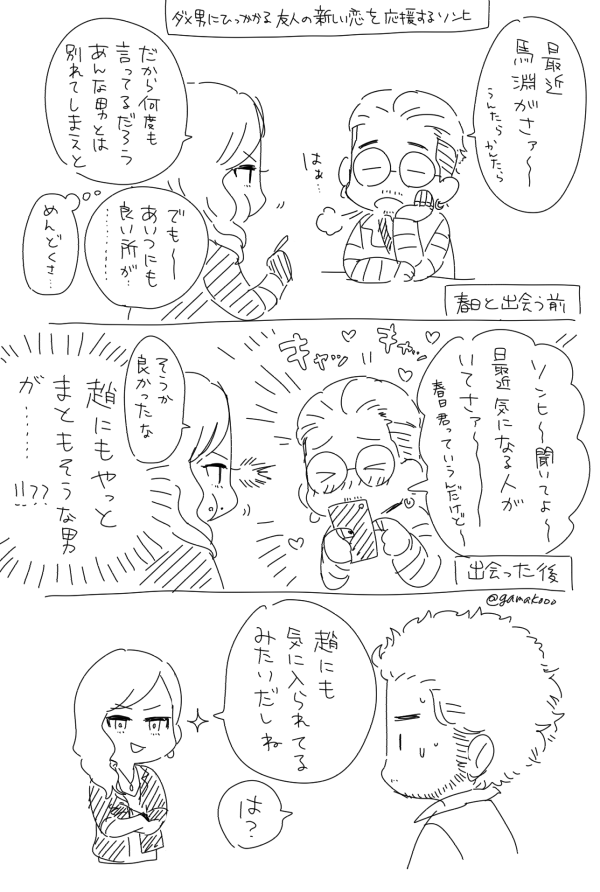 ダメ男にひっかかる友人の新しい恋を応援するソンヒ
最近
馬淵がさァ〜
うんたらかんたら
はぁ…
だから何度も
言ってるだろう
あんな男とは
別れてしまえと
でも〜
あいつにも
良い所が…
…………
めんどくさ…
春日と出会う前
ソンヒ〜聞いてよ〜
最近気になる人が
いてさァ〜
春日君っていうんだけど〜
キャッ
キャッ
そうか
良かったな
趙にもやっと
まともそうな男
が………
!!??
出会った後
@gamakooo
趙にも
気に入られてる
みたいだしね
は?